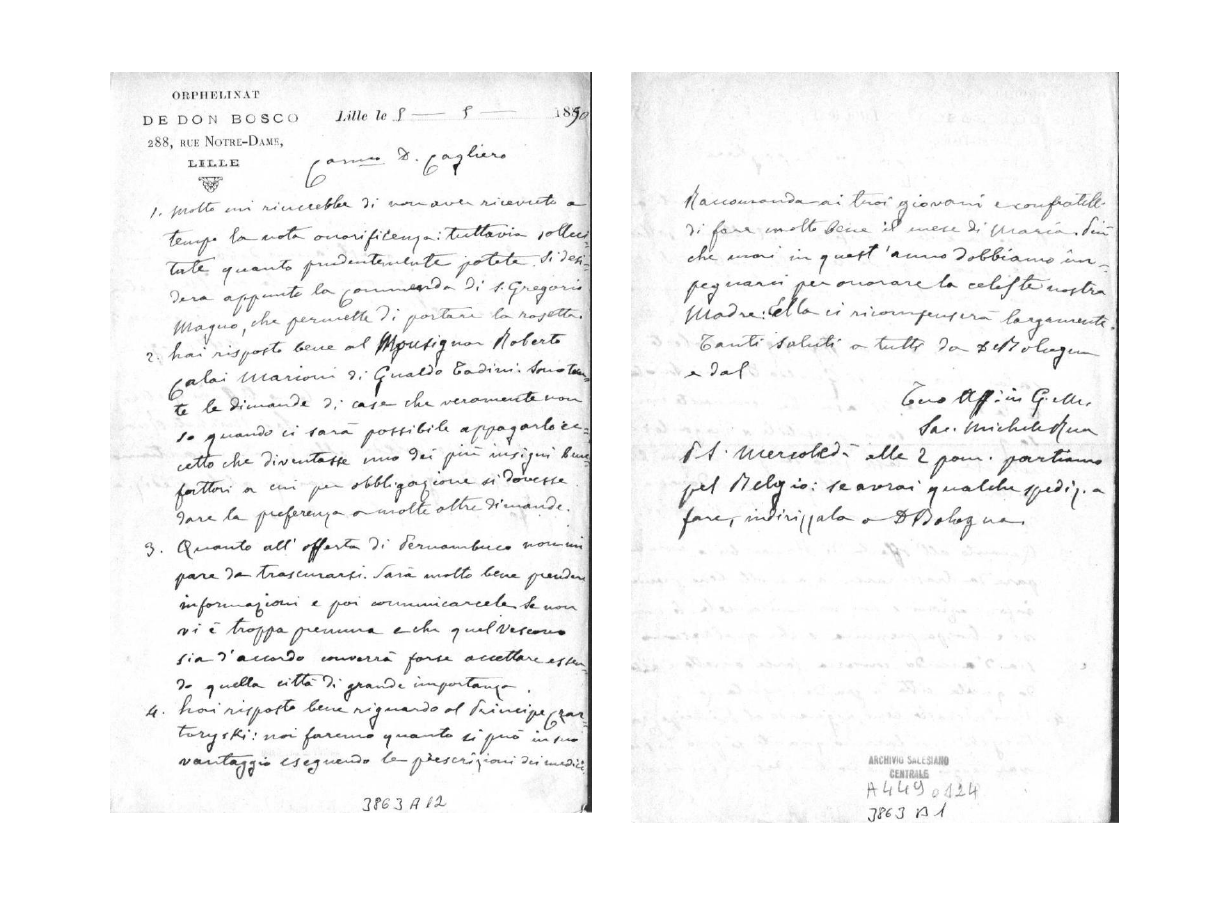 ORPHELINAT
DE DON BOSCO
288, RUE NOTRE-DAME,
LILLE
Lille le 5 — 5 — 1890
Carmo D. Cagliero
1. Molto mi rincrebbe di non aver ricevuto a
tempo la nota onorificenza: tuttavia solleci-
tate quanto prudentemente potete. Si desi-
dera appunto la Commenda di S. Gregorio
Magno, che permette di portare la rosetta.
2. Hai risposto bene al Monsignor Roberto
Calai Marioni di Gualdo Tadini. Sono tan-
te le dimande di case che veramente non
so quando ci sarà possibile appagarlo ec-
cetto che diventasse uno dei più insigni bene-
fattori a cui per obbligazione si dovesse
dare la preferenza a molte altre dimande.
3. Quanto all'offerta di Pernambuco non mi
pare da trascurarsi. Sarà molto bene prendere
informazioni e poi comunicarcele. Se non
vi è troppa premura e che quel Vescovo
sia d'accordo converrà forse accettare essen-
do quella città di grande importanza.
4. Hai risposto bene riguardo al Principe Czar-
toryski: noi faremo quanto si può in suo
vantaggio eseguendo le prescrizioni dei medici.
3863 A 12
Raccomanda ai tuoi giovani e confratelli
di fare molto bene il mese di Maria. Più
che mai in quest'anno dobbiamo im-
pegnarci per onorare la celeste nostra
Madre. Ella ci ricompenserà largamente.
Tanti saluti a tutti da D. Bologna
e dal
Tuo Aff. in G. e M.
Sac. Michele Rua
P.S. Mercoledì alle 2 pom. partiamo
pel Belgio: se avrai qualche spediz. a
fare, indirizzala a D. Bologna.
ARCHIVIO SALESIANO
CENTRALE
A 449 0124
3863 B 1